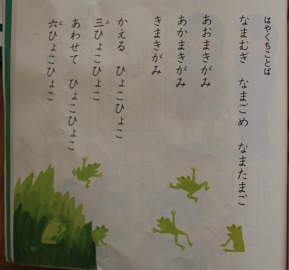 はやくちことば
なまむぎ　なまごめ　なまたまご
あおまきがみ
あかまきがみ
きまきがみ
かえる　ひょこひょこ
三ひょこひょこ
あわせて　ひょこひょこ
六ひょこひょこ